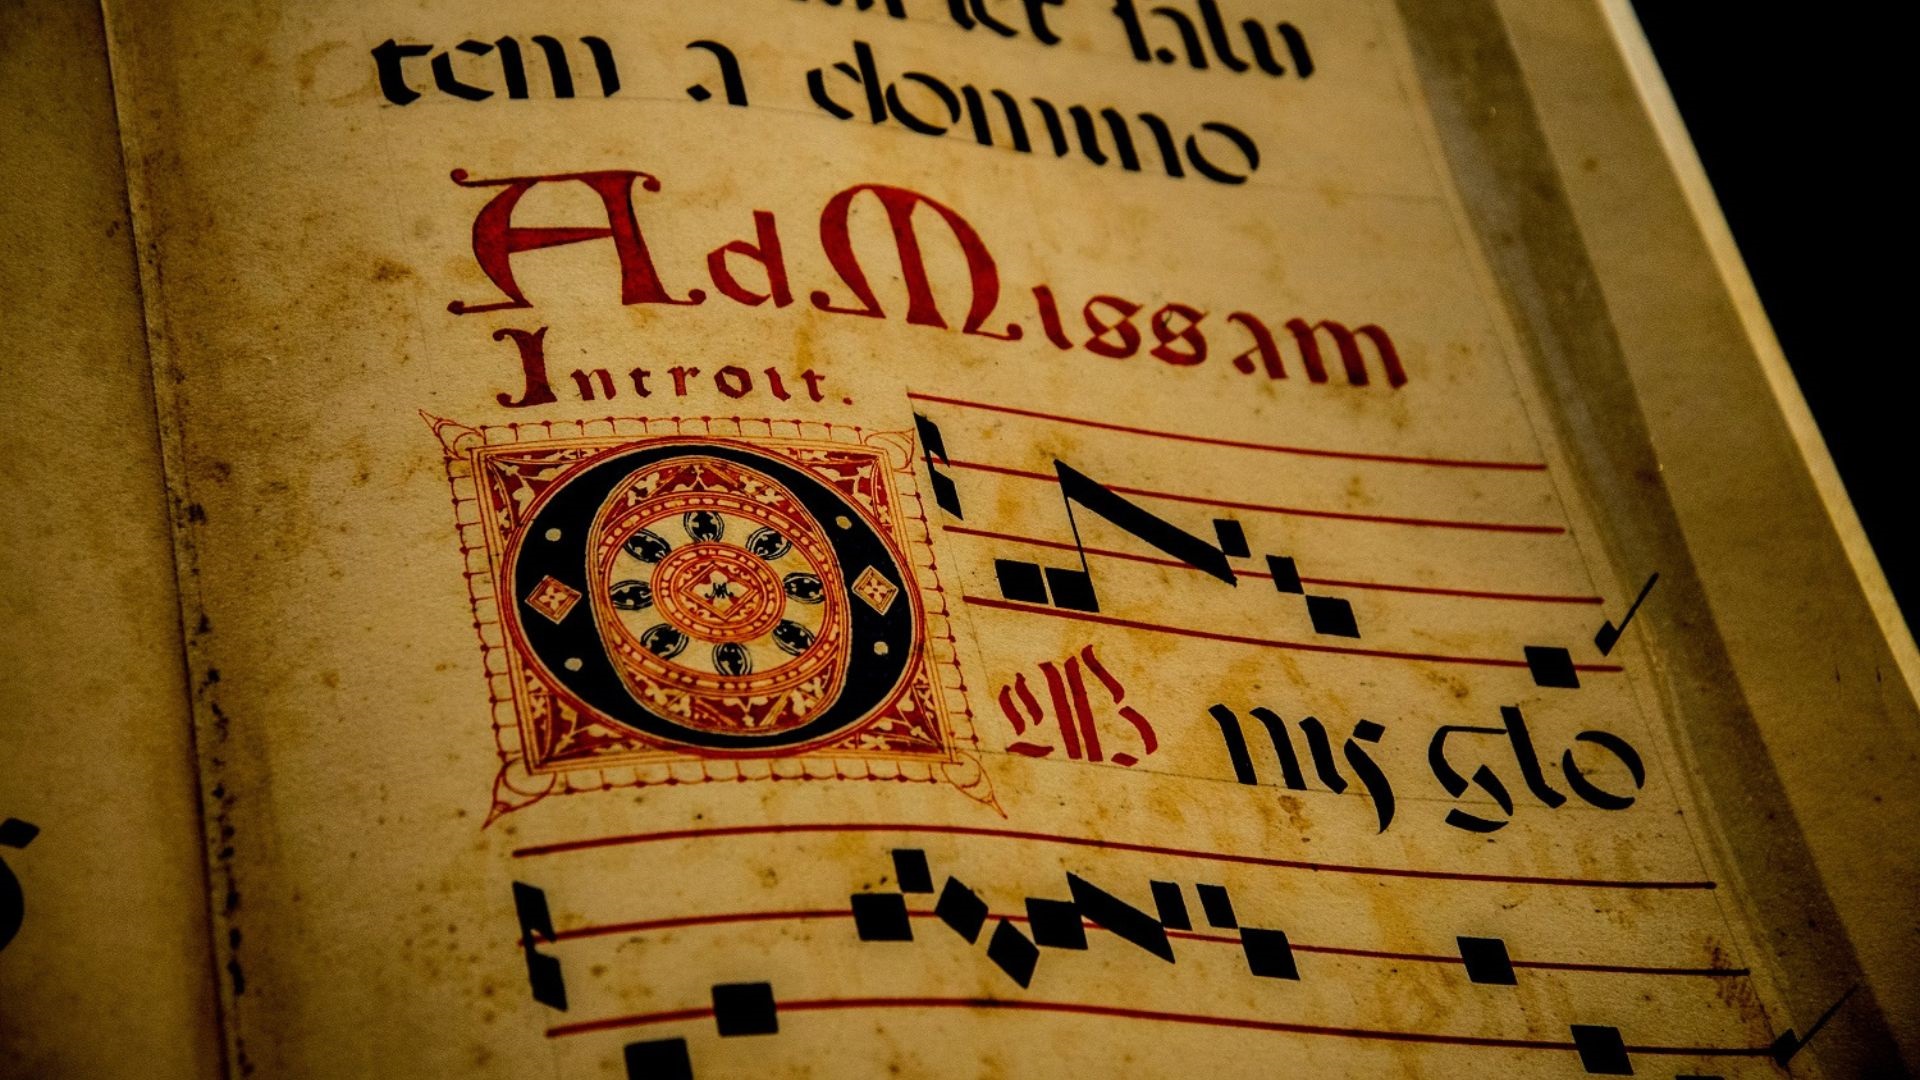 salu
tem a domino
Ad Missam
Introit.
OM nis glo